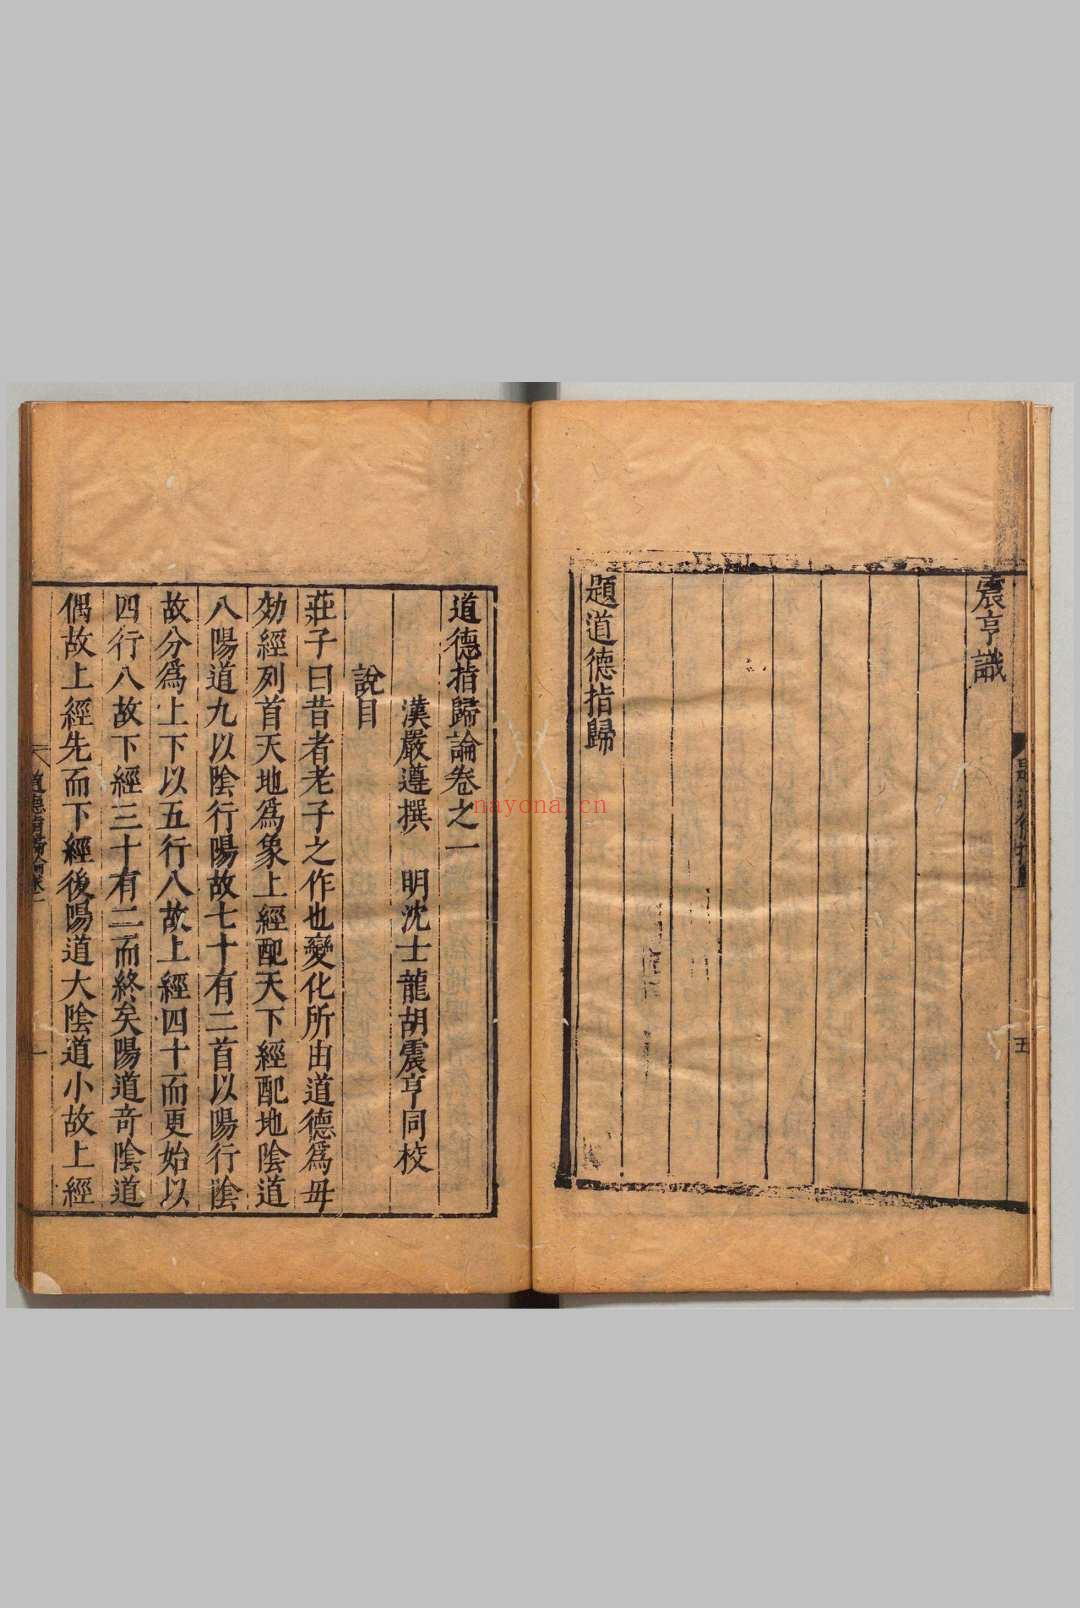 震亨識
題道德指歸
五
道德指歸論卷之一
漢嚴遵撰　明沈士龍胡震亨同校
說目
莊子曰昔者老子之作也變化所由道德爲毋
効經列首天地爲象上經配天下經配地陰道
八陽道九以陰行陽故七十有二首以陽行陰
故分爲上下以五行八故上經四十而更始以
四行八故下經三十有二而終矣陽道奇陰道
偶故上經先而下經後陽道大陰道小故上經
nayona.cn